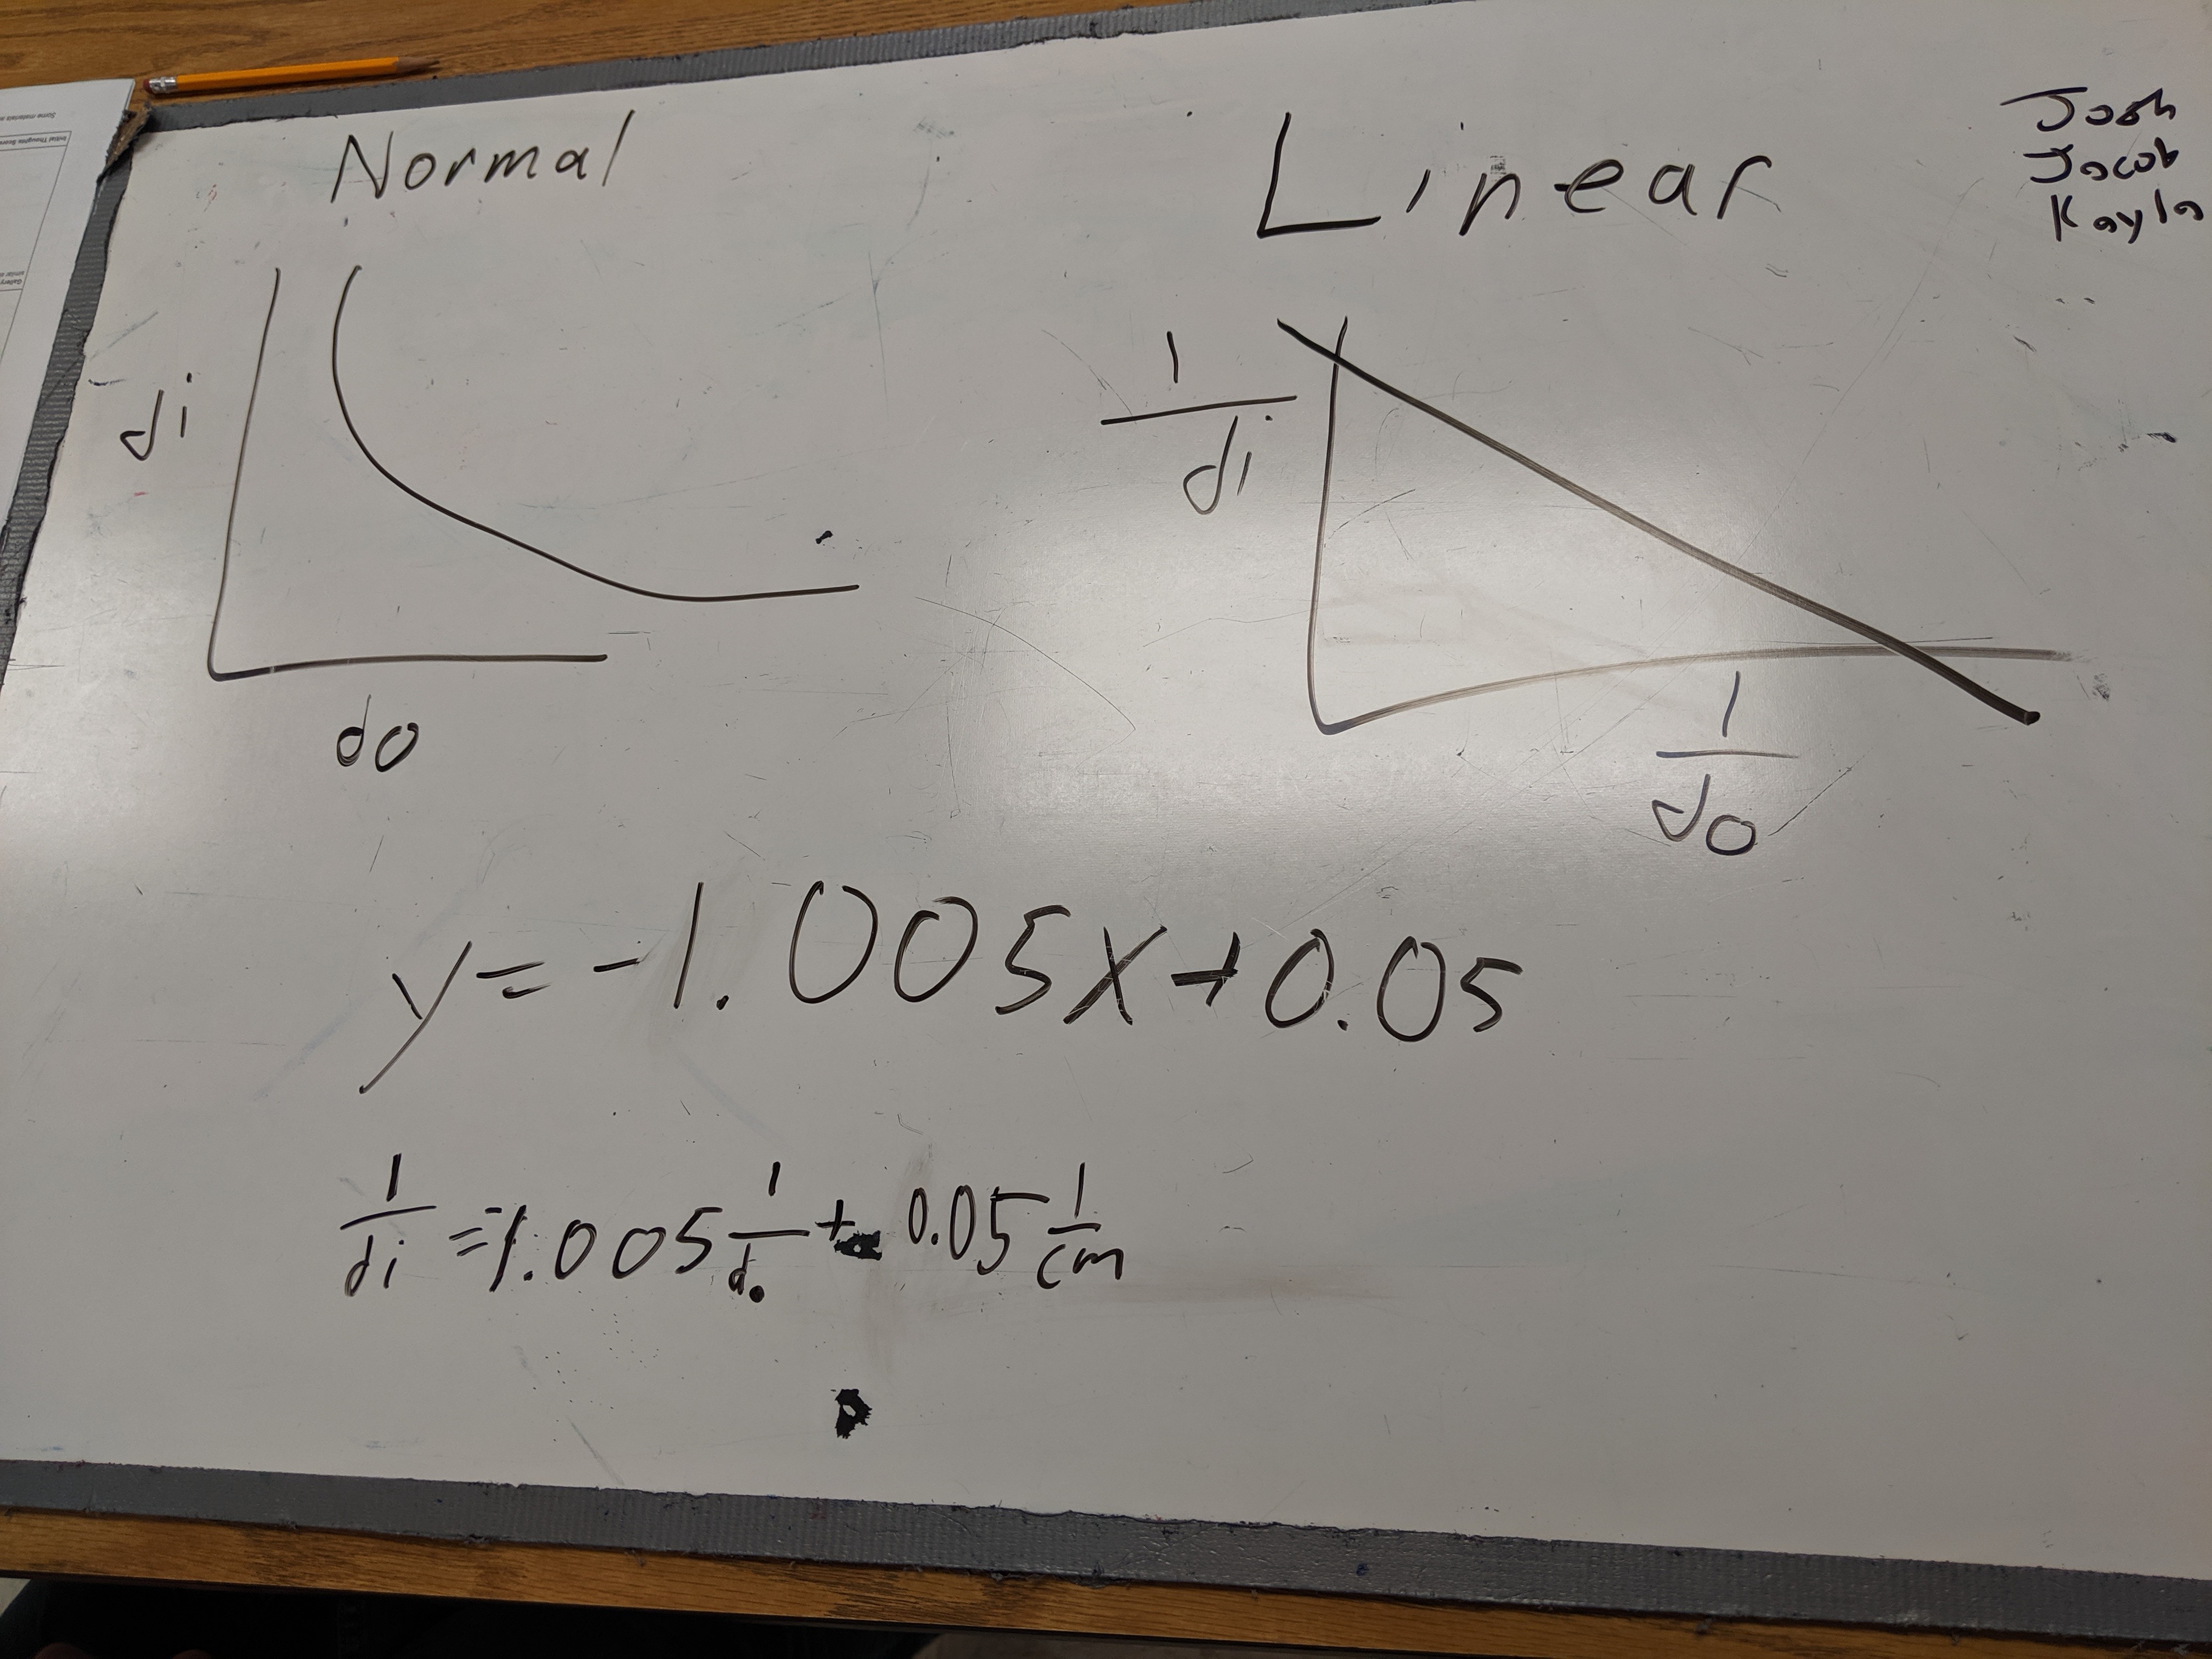 Normal
Linear
Josh
Jacob
Kayla
di
do
1/di
1/do
y = -1.005x + 0.05
1/di = -1.005 1/do + 0.05 1/cm